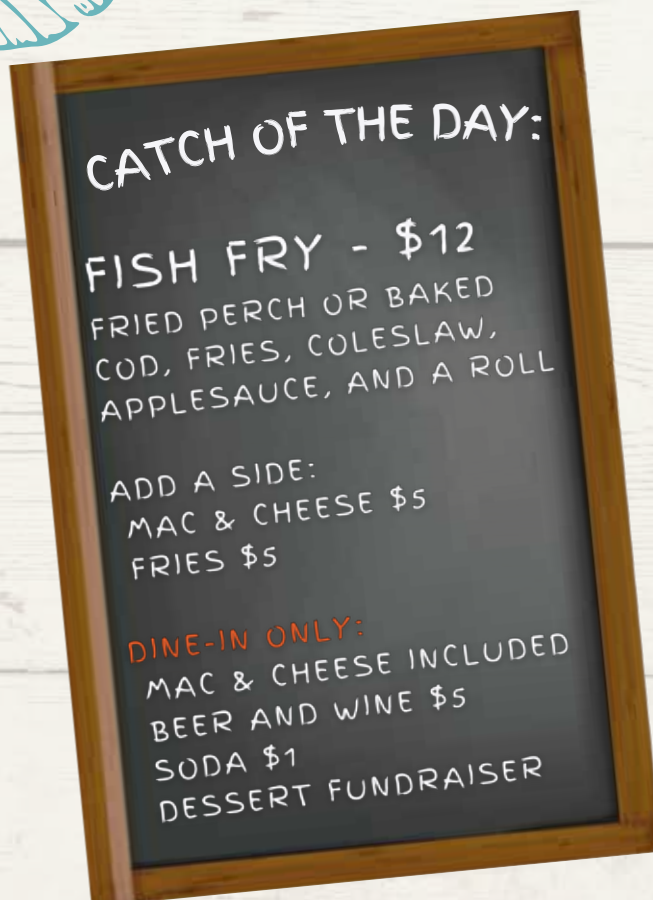 CATCH OF THE DAY:
FISH FRY - $12
FRIED PERCH OR BAKED
COD, FRIES, COLESLAW,
APPLESAUCE, AND A ROLL
ADD A SIDE:
MAC & CHEESE $5
FRIES $5
DINE-IN ONLY:
MAC & CHEESE INCLUDED
BEER AND WINE $5
SODA $1
DESSERT FUNDRAISER